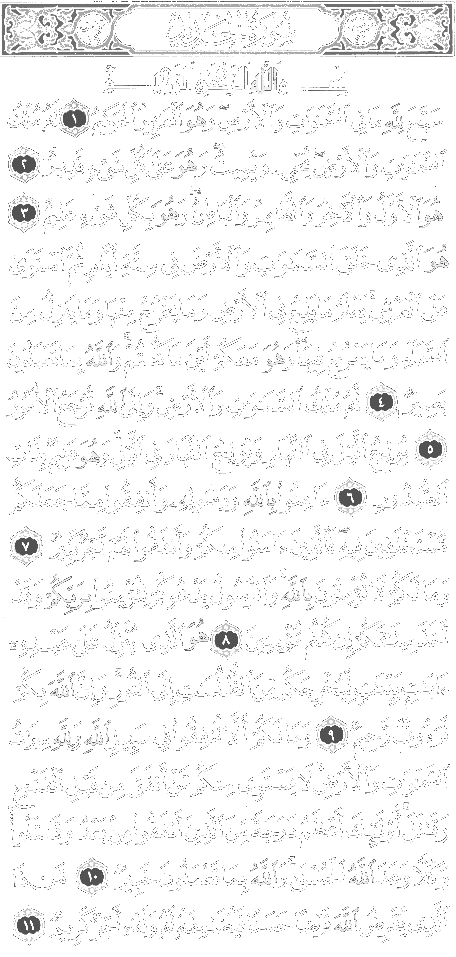 سُورَةُ الحَدِيدِ
بِسْمِ اللَّهِ الرَّحْمَٰنِ الرَّحِيمِ
سَبَّحَ لِلَّهِ مَا فِي السَّمَاوَاتِ وَالْأَرْضِ وَهُوَ الْعَزِيزُ الْحَكِيمُ ١ لَهُ مُلْكُ
السَّمَاوَاتِ وَالْأَرْضِ يُحْيِي وَيُمِيتُ وَهُوَ عَلَىٰ كُلِّ شَيْءٍ قَدِيرٌ ٢
هُوَ الْأَوَّلُ وَالْآخِرُ وَالظَّاهِرُ وَالْبَاطِنُ وَهُوَ بِكُلِّ شَيْءٍ عَلِيمٌ ٣
هُوَ الَّذِي خَلَقَ السَّمَاوَاتِ وَالْأَرْضَ فِي سِتَّةِ أَيَّامٍ ثُمَّ اسْتَوَىٰ
عَلَى الْعَرْشِ يَعْلَمُ مَا يَلِجُ فِي الْأَرْضِ وَمَا يَخْرُجُ مِنْهَا وَمَا يَنزِلُ مِنَ
السَّمَاءِ وَمَا يَعْرُجُ فِيهَا وَهُوَ مَعَكُمْ أَيْنَ مَا كُنتُمْ وَاللَّهُ بِمَا تَعْمَلُونَ
بَصِيرٌ ٤ لَّهُ مُلْكُ السَّمَاوَاتِ وَالْأَرْضِ وَإِلَى اللَّهِ تُرْجَعُ الْأُمُورُ
٥ يُولِجُ اللَّيْلَ فِي النَّهَارِ وَيُولِجُ النَّهَارَ فِي اللَّيْلِ وَهُوَ عَلِيمٌ بِذَاتِ
الصُّدُورِ ٦ آمِنُوا بِاللَّهِ وَرَسُولِهِ وَأَنفِقُوا مِمَّا جَعَلَكُم
مُّسْتَخْلَفِينَ فِيهِ فَالَّذِينَ آمَنُوا مِنكُمْ وَأَنفَقُوا لَهُمْ أَجْرٌ كَبِيرٌ ٧
وَمَا لَكُمْ لَا تُؤْمِنُونَ بِاللَّهِ وَالرَّسُولُ يَدْعُوكُمْ لِتُؤْمِنُوا بِرَبِّكُمْ وَقَدْ
أَخَذَ مِيثَاقَكُمْ إِن كُنتُم مُّؤْمِنِينَ ٨ هُوَ الَّذِي يُنَزِّلُ عَلَىٰ عَبْدِهِ
آيَاتٍ بَيِّنَاتٍ لِّيُخْرِجَكُم مِّنَ الظُّلُمَاتِ إِلَى النُّورِ وَإِنَّ اللَّهَ بِكُمْ
لَرَءُوفٌ رَّحِيمٌ ٩ وَمَا لَكُمْ أَلَّا تُنفِقُوا فِي سَبِيلِ اللَّهِ وَلِلَّهِ مِيرَاثُ
السَّمَاوَاتِ وَالْأَرْضِ لَا يَسْتَوِي مِنكُم مَّنْ أَنفَقَ مِن قَبْلِ الْفَتْحِ
وَقَاتَلَ أُولَٰئِكَ أَعْظَمُ دَرَجَةً مِّنَ الَّذِينَ أَنفَقُوا مِن بَعْدُ وَقَاتَلُوا
وَكُلًّا وَعَدَ اللَّهُ الْحُسْنَىٰ وَاللَّهُ بِمَا تَعْمَلُونَ خَبِيرٌ ١٠ مَّن ذَا
الَّذِي يُقْرِضُ اللَّهَ قَرْضًا حَسَنًا فَيُضَاعِفَهُ لَهُ وَلَهُ أَجْرٌ كَرِيمٌ ١١